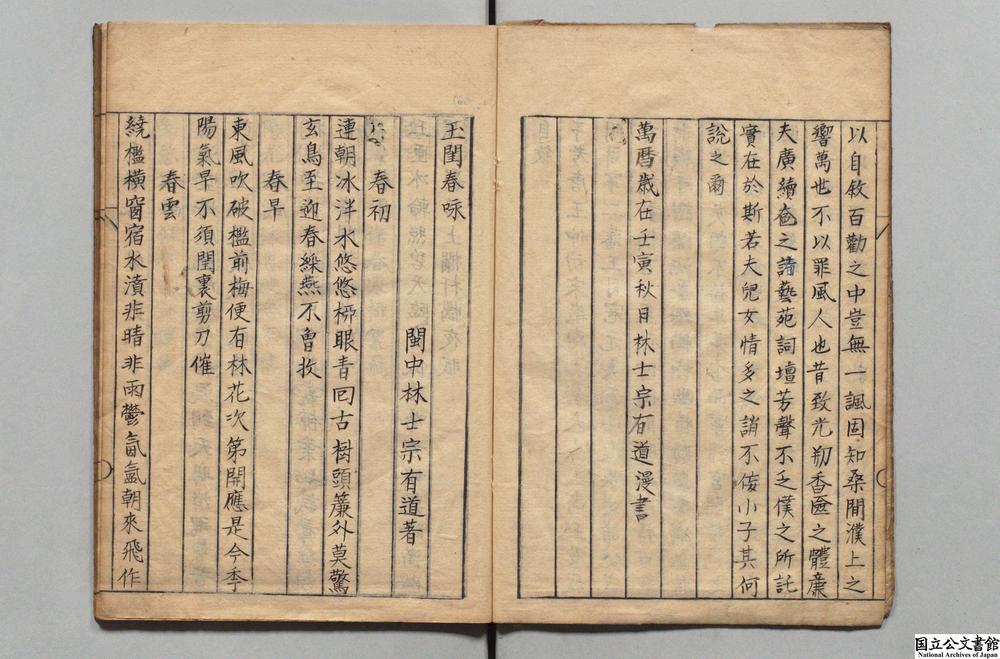 以自敘百勸之中豈無一諷固知桑間濮上之
響萬世不以罪風人也昔致光刱香奩之體廉
夫廣續奩之諸藝苑詞壇芳聲不乏僕之所託
實在於斯若夫兒女情多之誚不佞小子其何
說之爾
萬曆歲在壬寅秋日林士宗有道漫書
玉閨春咏
閩中林士宗有道著
春初
連朝冰泮水悠悠柳眼青回古樹頭簾外莫驚
玄鳥至迎春綵燕不曾收
春早
東風吹破檻前梅便有林花次第開應是今季
陽氣早不須閨裏剪刀催
春雲
繞檻橫窗宿水濆非晴非雨鬱氤氳朝來飛作
国立公文書館
National Archives of Japan